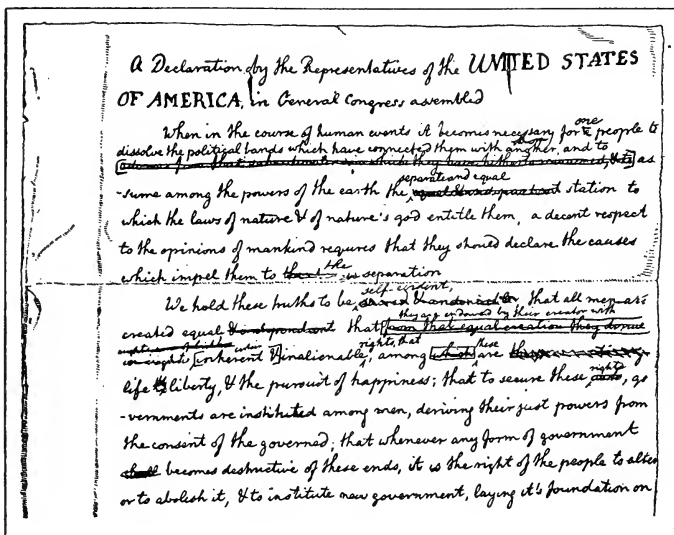 A Declaration by the Representatives of the UNITED STATES
OF AMERICA, in General Congress assembled
When in the course of human events it becomes necessary for one people to
dissolve the political bands which have connected them with another, and to
as
-sume among the powers of the earth the separate and equal station to
which the laws of nature & of nature's god entitle them, a decent respect
to the opinions of mankind requires that they should declare the causes
which impel them to the separation
We hold these truths to be self-evident, that all men are
created equal that they are endowed by their creator with
inherent & inalienable rights, that among these are
life liberty, & the pursuit of happiness; that to secure these rights, go
-vernments are instituted among men, deriving their just powers from
the consent of the governed; that whenever any form of government
becomes destructive of these ends, it is the right of the people to alter
or to abolish it, & to institute new government, laying it's foundation on